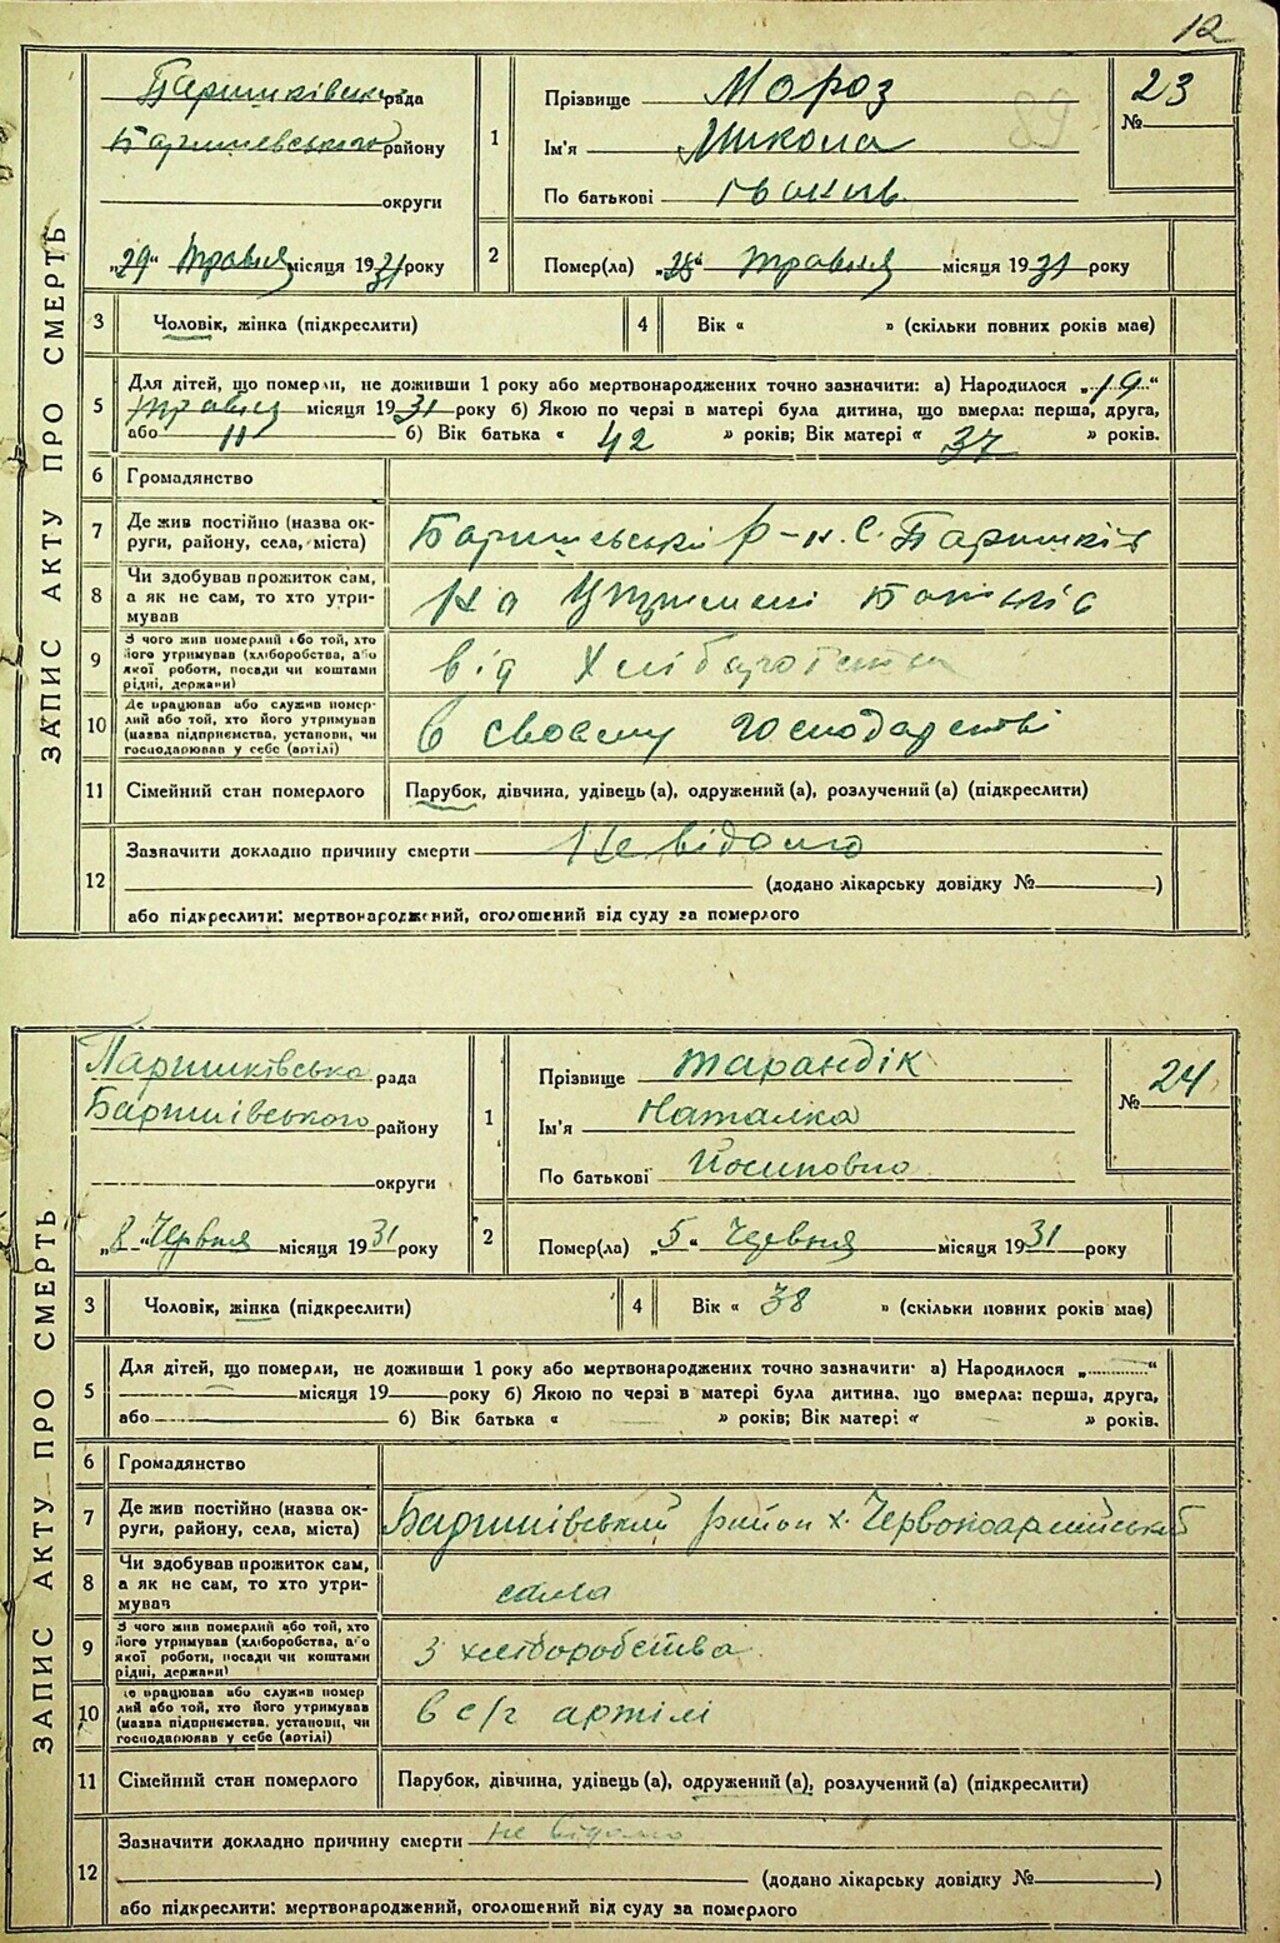 12
ЗАПИС АКТУ ПРО СМЕРТЬ
Паришківська рада
Баришевського району
округи
„29“ травня місяця 1931 року
1
Прізвище Мороз
Ім'я Микола
По батькові Іваків.
№ 23
89
2
Помер(ла) „28“ травня місяця 1931 року
3 Чоловік, жінка (підкреслити)
4 Вік « » (скільки повних років має)
5 Для дітей, що померли, не доживши 1 року або мертвонароджених точно зазначити: а) Народилося „19“
травня місяця 1931 року б) Якою по черзі в матері була дитина, що вмерла: перша, друга,
або 11 б) Вік батька « 42 » років; Вік матері « 37 » років.
6 Громадянство
7 Де жив постійно (назва ок-
руги, району, села, міста)
Баришевські р-н. с. Паришків
8 Чи здобував прожиток сам,
а як не сам, то хто утри-
мував
На утримені батьків
9 З чого жив померлий або той, хто
його утримував (хліборобства, або
якої роботи, посади чи коштами
рідні, держави)
від
10 Де працював або служив помер-
лий або той, хто його утримував
(назва підприємства, установи, чи
господарював у себе (артілі)
в своєму господарстві
11 Сімейний стан померлого
Парубок, дівчина, удівець (а), одружений (а), розлучений (а) (підкреслити)
12 Зазначити докладно причину смерти Не відомо
(додано лікарську довідку № )
або підкреслити: мертвонароджений, оголошений від суду за померлого
ЗАПИС АКТУ ПРО СМЕРТЬ
Паришківська рада
Баришівського району
округи
„8“ Червня місяця 1931 року
1
Прізвище Тарандік
Ім'я Наталка
По батькові Йосиповна
№ 24
2
Помер(ла) „5“ Червня місяця 1931 року
3 Чоловік, жінка (підкреслити)
4 Вік « 38 » (скільки повних років має)
5 Для дітей, що померли, не доживши 1 року або мертвонароджених точно зазначити: а) Народилося „ “
місяця 19 року б) Якою по черзі в матері була дитина, що вмерла: перша, друга,
або б) Вік батька « » років; Вік матері « » років.
6 Громадянство
7 Де жив постійно (назва ок-
руги, району, села, міста)
Баришівський район х. Червоноармійський
8 Чи здобував прожиток сам,
а як не сам, то хто утри-
мував
сама
9 З чого жив померлий або той, хто
його утримував (хліборобства, або
якої роботи, посади чи коштами
рідні, держави)
З хліборобства
10 Де працював або служив помер
лий або той, хто його утримував
(назва підприємства, установи, чи
господарював у себе (артілі)
в с/г артілі
11 Сімейний стан померлого
Парубок, дівчина, удівець (а), одружений (а), розлучений (а) (підкреслити)
12 Зазначити докладно причину смерти не відомо
(додано лікарську довідку № )
або підкреслити: мертвонароджений, оголошений від суду за померлого